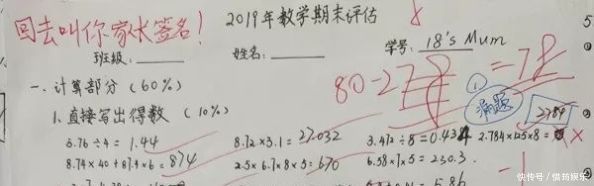 回去叫你家长签名！ 2019年数学期末评估
班级： 姓名： 学号：18's Mum
80-2=78
一、计算部分（60%） ① 漏题
1. 直接写出得数（10%） 2784
5.76÷4=1.44 8.72×3.1=27.032 3.472÷8=0.434 2.784×125×8=
8.74×40+87.4×6=874 2.5×6.7×8×5=670 6.58×7×5=230.3
-1
快传号／慎筠娱乐